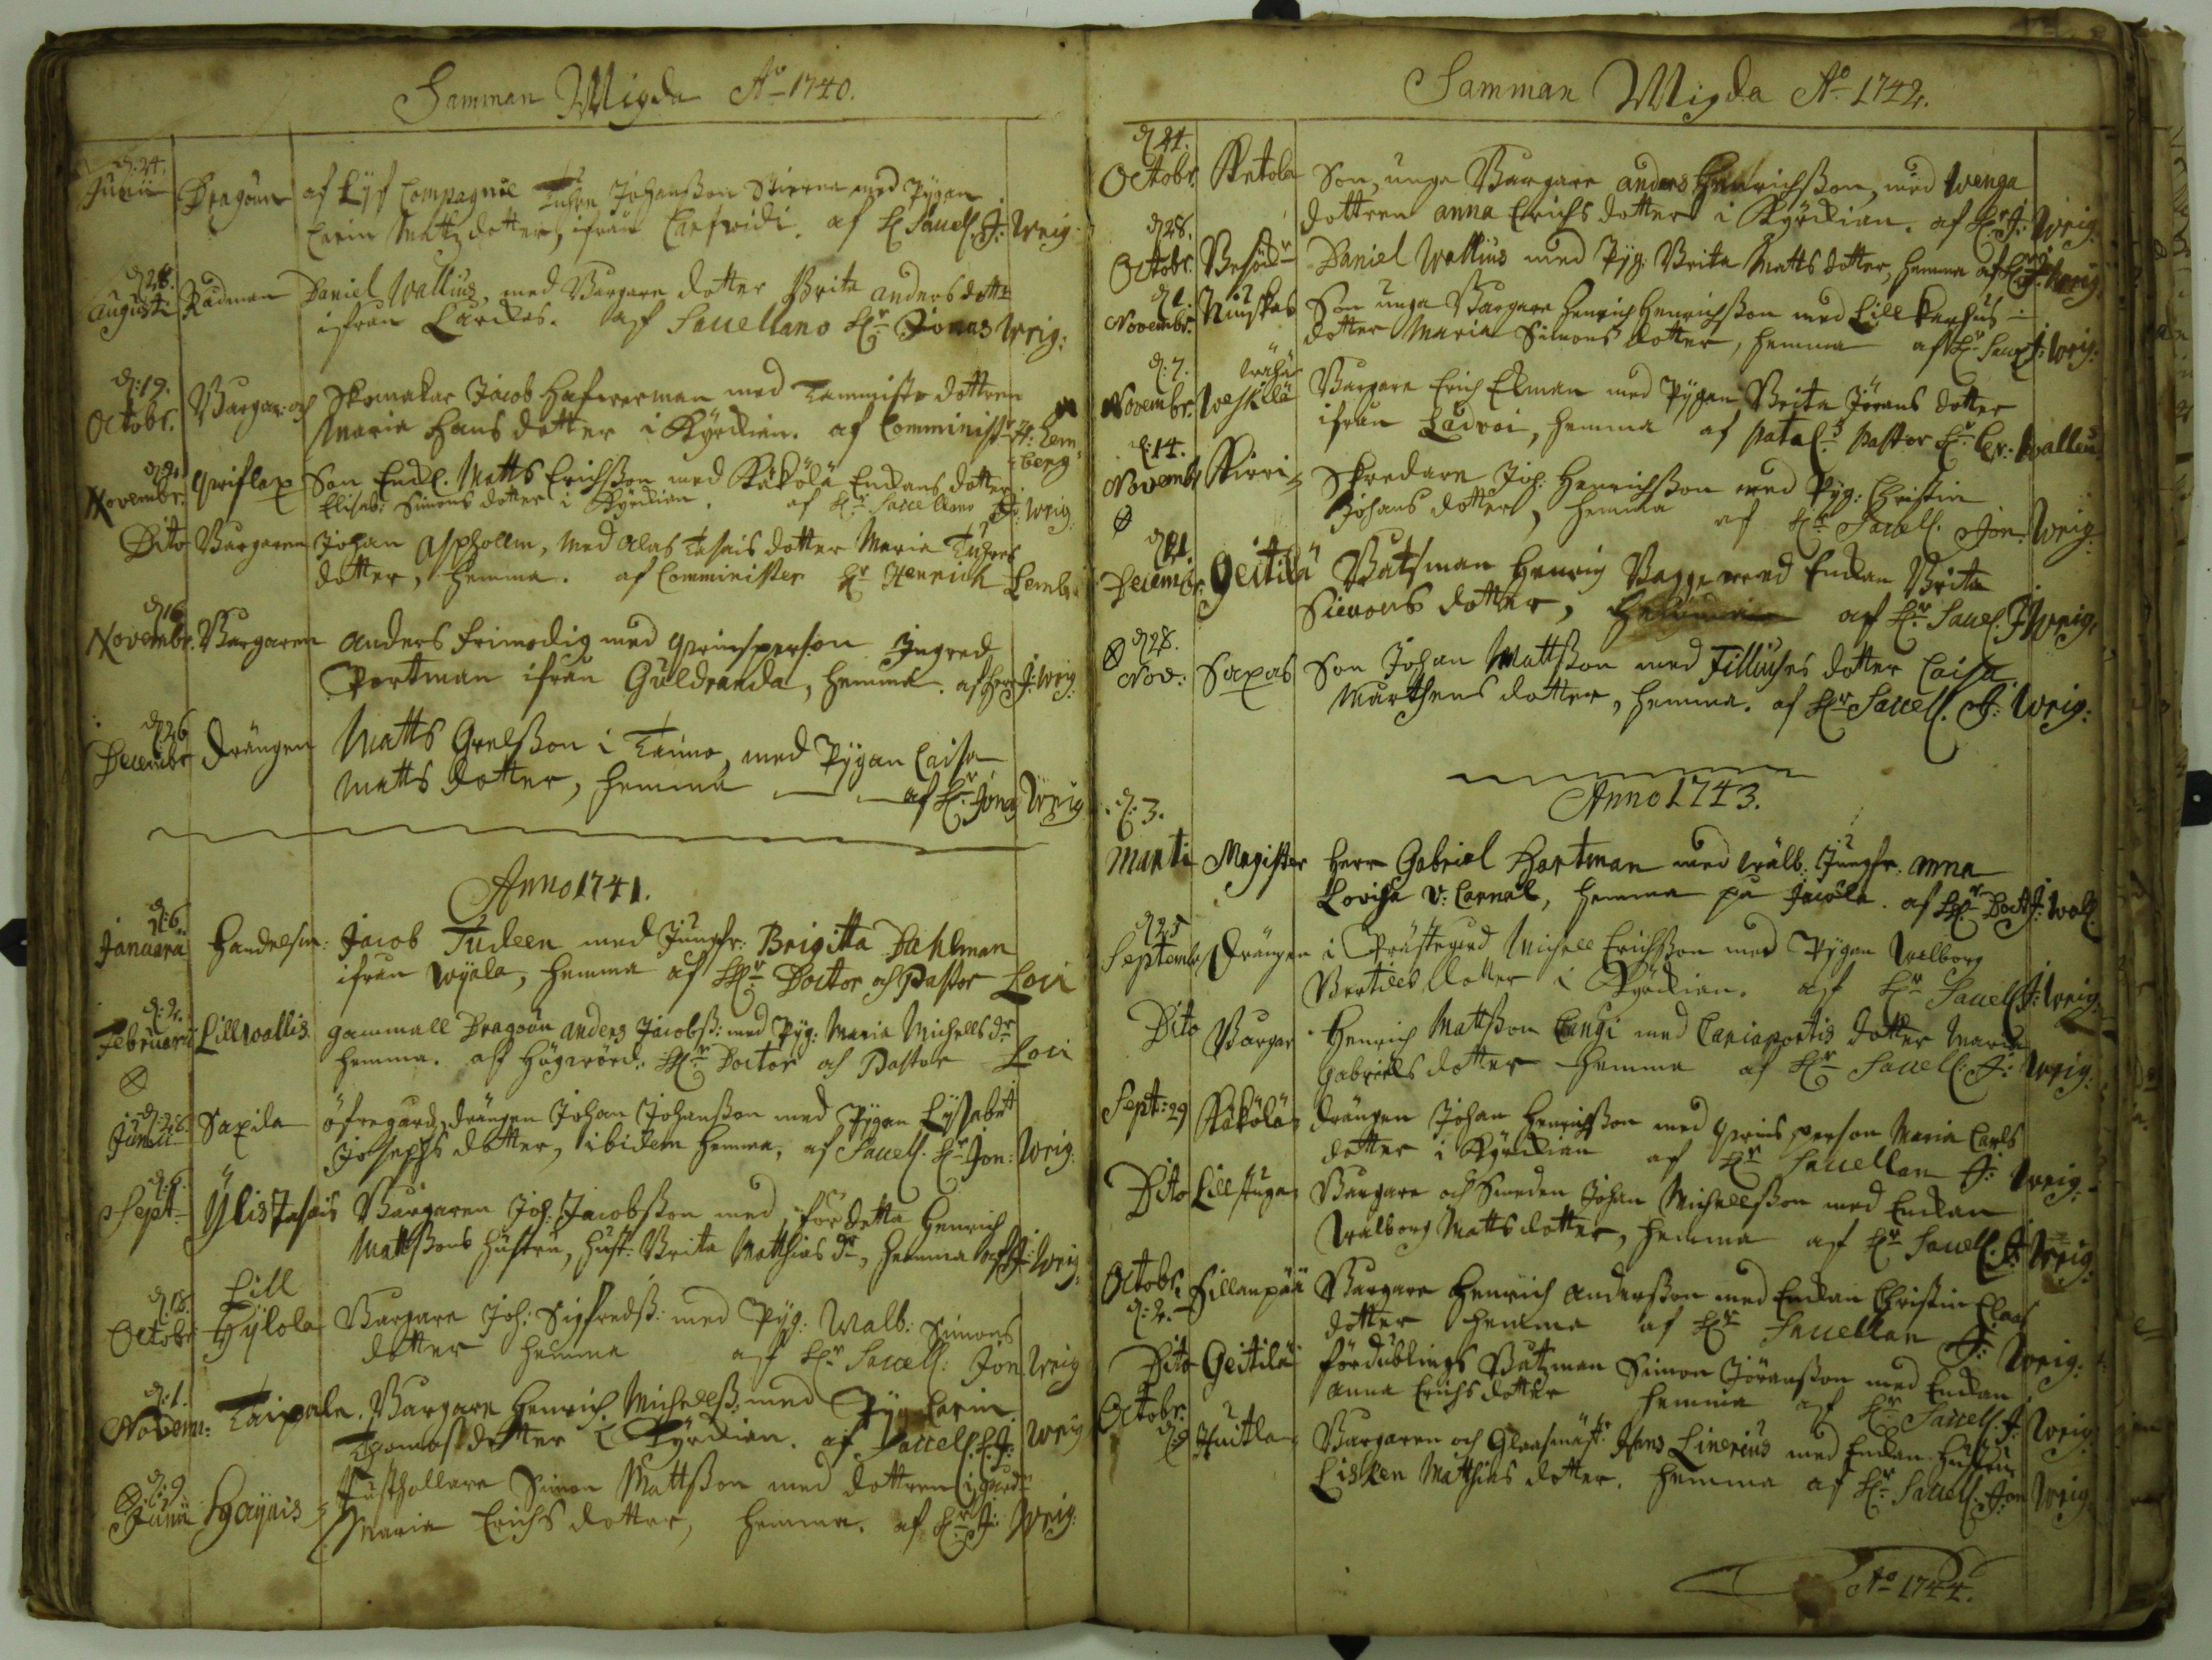 Samman Wigda Ao 1740.
d. 24.
Junii Dragoun af Lijf Compagnie Johansson Stierna med Pygan
Carin Matts dotter, ifrån af H. Sacell. J: Wrig:
d 28.
Augusti Rådman Daniel Wallius, med Borgare dotter Brita Anders dotter
ifrån Lardes. af Sacellano Hr Jonas Wrig:
d: 19.
Octobr. Borgar: och Skomakar Jacob Hafverman med Tammisto dottren
Maria Hans dotter i Kyrckian. af Comminist H: Lem
berg
Novembr: Son Enckl. Matts Erichsson med Käkölä Enckans dotter
Elisab: Simons dotter i Kyrckian. af Hr Sacellano J: Wrig:
Dito Borgaren Johan Aspholm, med Alas Tasais dotter Maria
dotter, hemma. af Comminister Hr Henrich Lemb:
d 16
Novembr. Borgaren Anders Frimodig med Qvinsperson Ingred
Portman ifrån Guldranda, hemma. af Herr J: Wrig:
d 26
Decembr Drängen Matts Grelsson i Taimo, med Pygan Caisa
Matts dotter, hemma — — af Hr Jonas Wrig
Anno 1741.
d: 6.
Januarii Handelsm: Jacob Tudeen med Jungfr: Brigitta Dahlman
ifrån Wijala, hemma af HHr Doctor och Pastor Loci
d: 2.
Februarii Lillwallis. gammall Dragoun Anders Jacobss: med Pyg: Maria Michells dr
hemma. af Högwörd: HHr Doctor och Pastor Loci
d: 26.
Junii Saxila öfregårds drängen Johan Johansson med Pygan Lysabet
Josephs dotter, ibidem hemma, af Sacell. Hr Jon: Wrig:
d: 6.
Sept. Ylistasais Borgaren Joh: Jacobsson med för detta Henrich
Mattssons hustru, hust: Brita Matthias dr, hemma af J: Wrig:
Lill
d 18.
Octobr Hylola Borgare Joh: Sigfredss: med Pyg: Walb: Simons
dotter hemma af Hr Sacell: Jon Wrig
d: 1.
Novem: Taipale. Borgare Henrich Michellss: med Pyg Carin
Thomas dotter i Kyrckian. af Sacell. H. J: Wrig
d: 9.
Junii Rusthollare Simon Mattsson med dottren i
Maria Erichs dotter, hemma. af Hr J: Wrig:
Samman Wigda Ao 1742.
d 24.
Octobr. Ketola Son, unge Borgare Anders Hinrichsson, med Wenga
dottren Anna Erichs dotter i Kyrckian. af Hr J: Wrig:
d 28.
Octobr. Daniel Wallius med Pyg. Brita Matts dotter, hemma af Hr J: Wrig.
d 1.
Novembr: Niuskas Son unga Borgare Henrich Henrichsson med Lill
dotter Maria Simons dotter, hemma af Hr Sacell J: Wrig:
d: 7. Wähä
Novembr: Weskilä Borgare Erich Ekman med Pygan Brita Jörans dotter
ifrån Ladvoi, hemma af Patals Pastor Hr Er: Walleni.
d: 14.
Novembr Kirri Skredare Joh: Henrichsson med Pyg: Christin
Johans dotter, hemma af Hr Sacell. Jon. Wrig:
d 21.
Decembr: Geitilä Båtsman Henrich Bagge med Enckan Brita
Simons dotter, af Hr Sacell. J Wrig:
d 28.
Nov: Saxas Son Johan Mattsson med Filluses dotter Caisa
Marthens dotter, hemma. af Hr Sacell. J: Wrig:
Anno 1743.
d: 3.
Marti Magister Herr Gabriel Hartman med wälb: Jungfr: Anna
Lovisa v: Carnal, hemma på Jacola. af HHr Doct J: Wall.
d 25
Septembr Drängen i Prästegård Michell Erichsson med Pygan Walborg
Bertills dotter i Kyrckian. af Hr Sacell J: Wrig:
Dito Borgar Henrich Mattsson Langi med dotter Maria
Gabriels dotter hemma af Hr Sacell: J: Wrig:
Sept: 29 Käkölä drängen Johan Henrichsson med Qvins person Maria Carls
dotter i Kyrckian af Hr Sacellan J: Wrig:
Dito Lillstuga Borgare och Smeden Johan Michellsson med Enckan
Walborg Matts dotter, hemma af Hr Sacell. J: Wrig:
Octobr. Hillanpää Borgare Henrich Andersson med Enckan Christin Clas
d: 2. dotter hemma af Hr Sacellan J: Wrig:
Dito Geitilä fördublings Båtzman Simon Jöransson med Enckan
Anna Erichs dotter hemma af Hr Sacell. J: Wrig:
Octobr.
d: 9 Huitla Borgaren och Glasmäst: Hans Linerius med Enckan hustru
Lisken Matthias dotter. hemma af Hr Sacell. Jon Wrig:
Ao 1744.